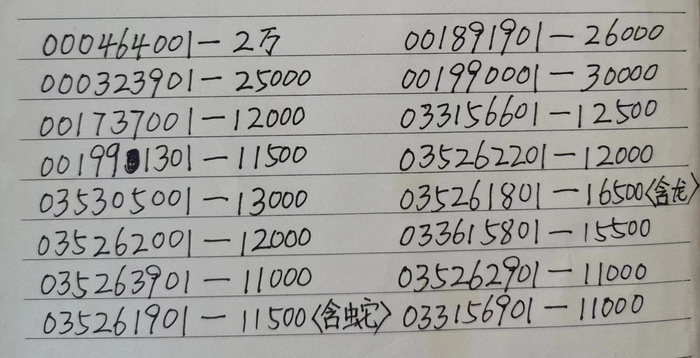 000464001-2万 001891901-26000
000323901-25000 001990001-30000
001737001-12000 033156601-12500
001991301-11500 035262201-12000
035305001-13000 035261801-16500<含龙>
035262001-12000 033615801-15500
035263901-11000 035262901-11000
035261901-11500<含蛇> 033156901-11000